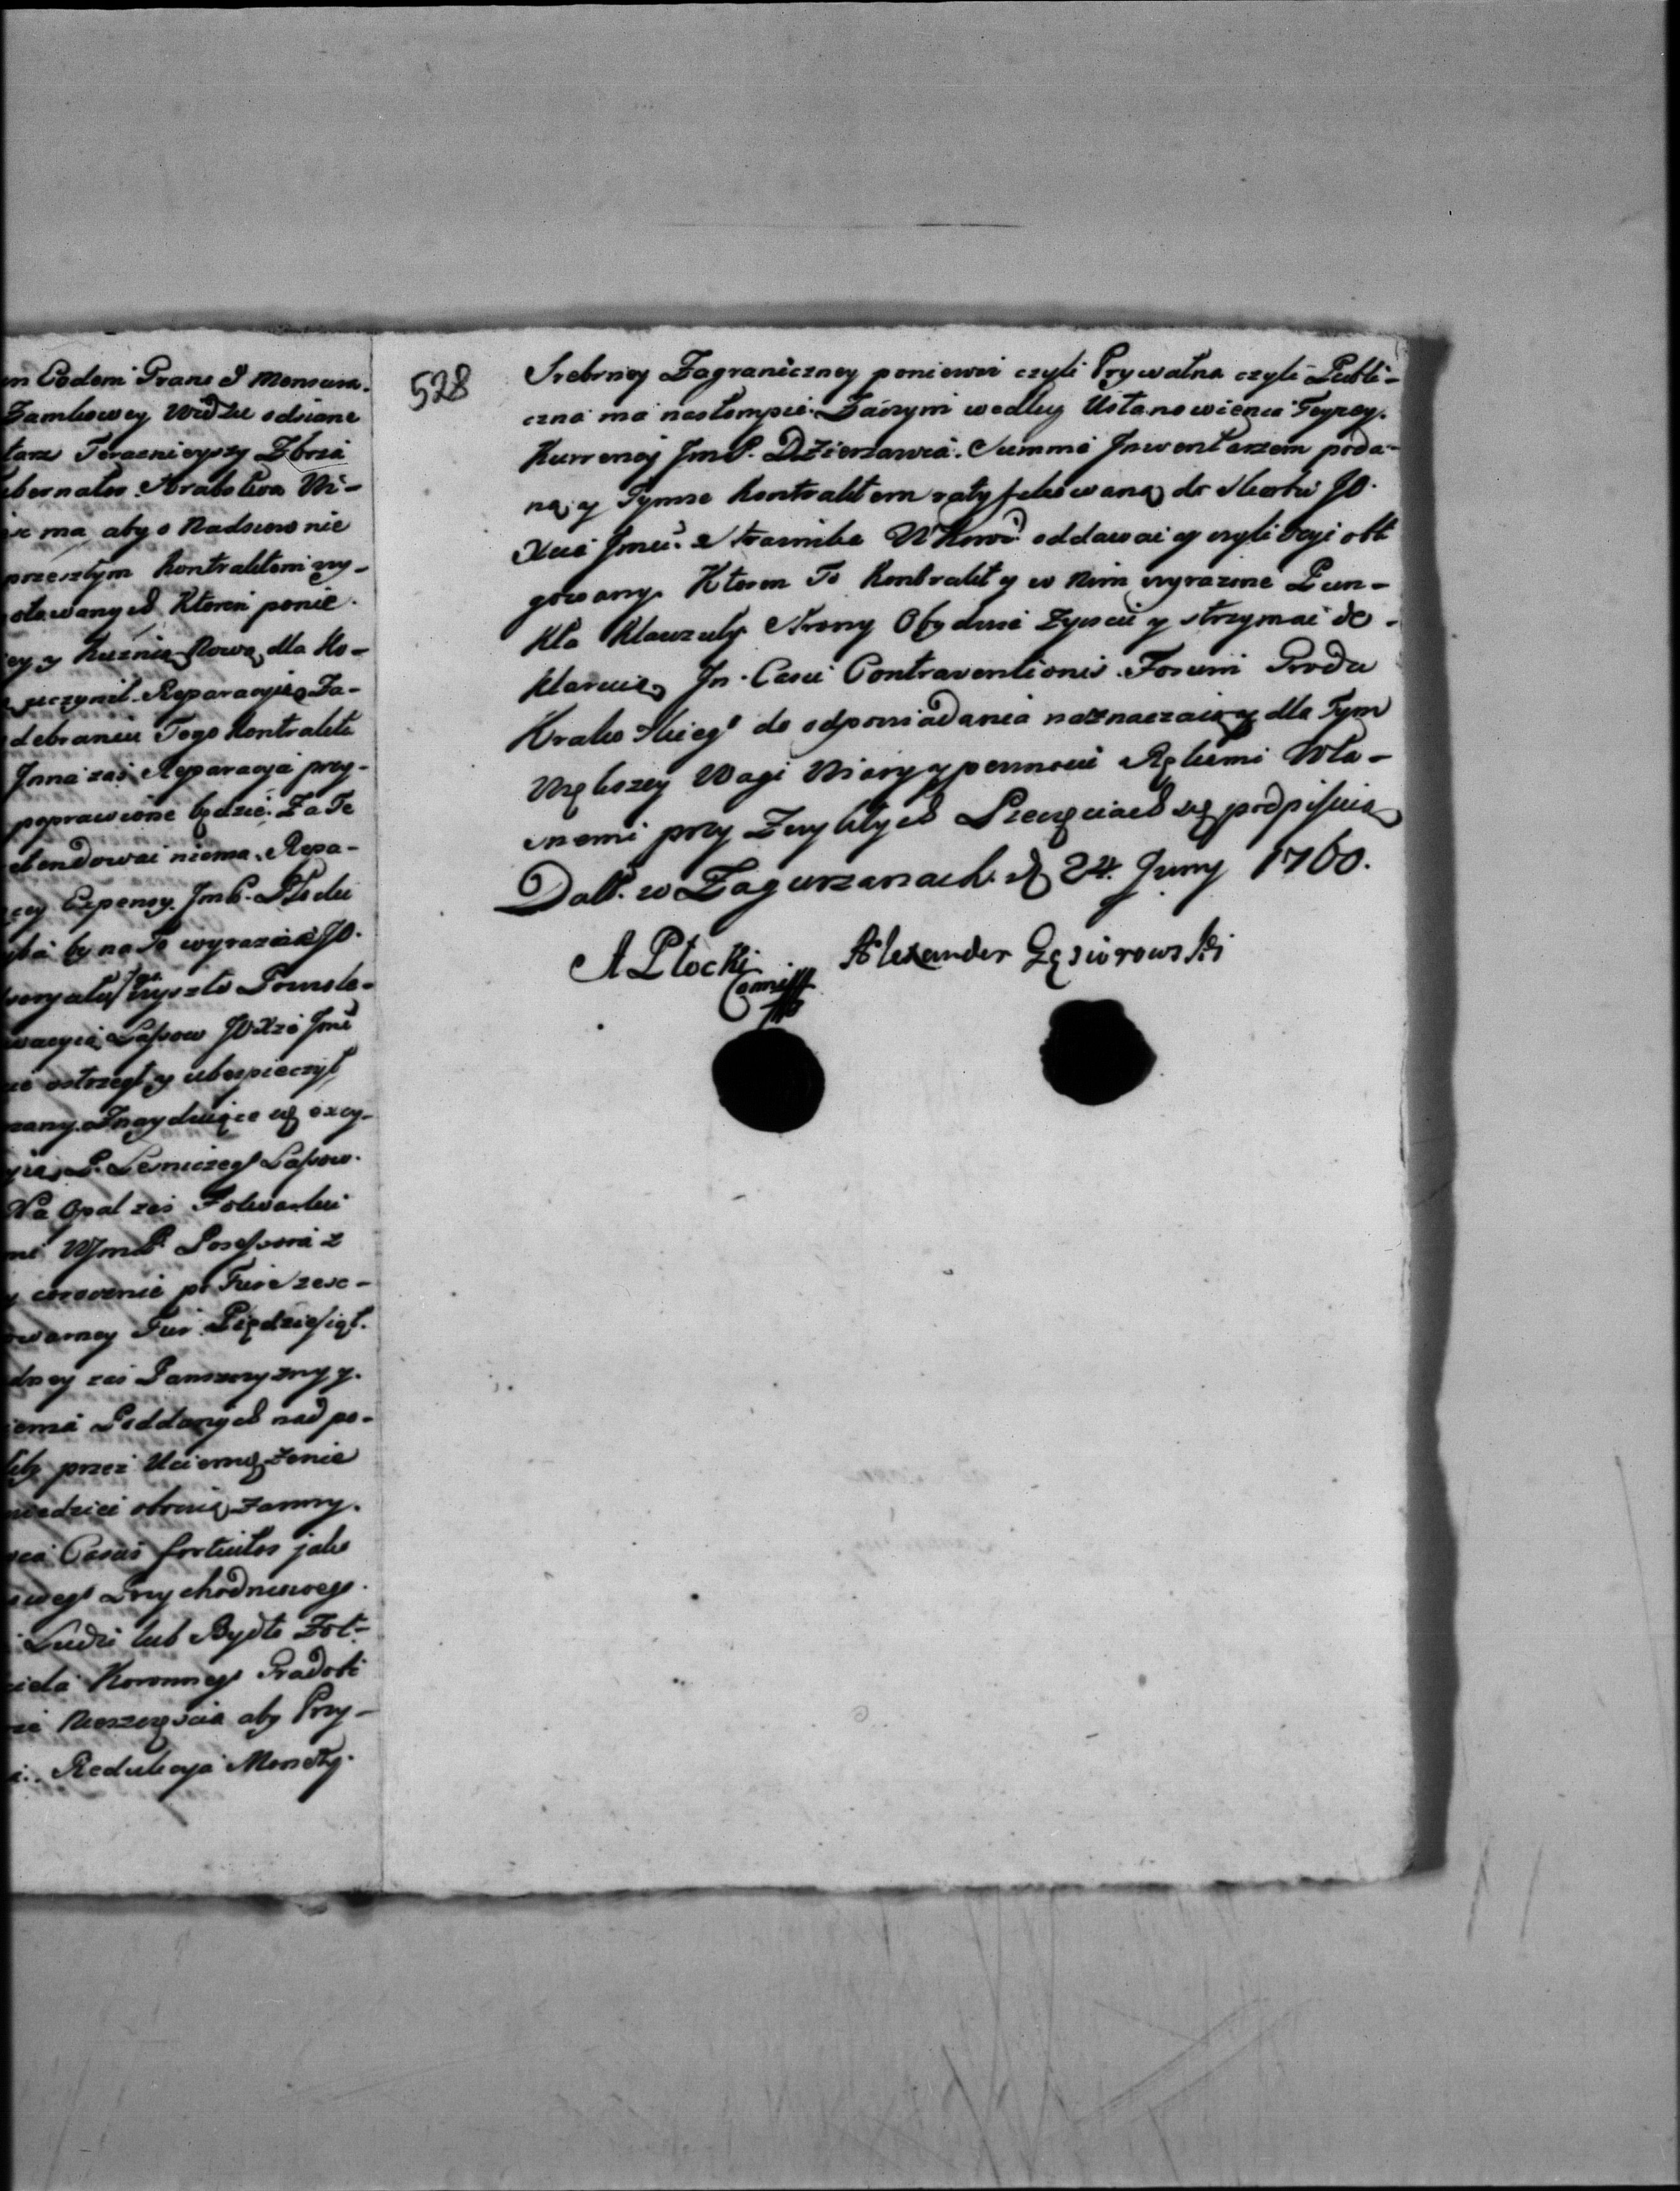 m Eodem Grano & Mensura.
Zamkowey Widzu odsiane
tarz Teraznieyszy Zboża
ubernator Hrabstwa Wi-
ma aby o Nadsucwnie
przeszłym Kontraktem wy-
otowanych Ktorei ponie.
ey y Kuznią Nową dla Ko-
uczynił Reparacyią Za-
debraniu Tego Kontraktu
Jnna zaś Reparacya przy-
poprawione będzie. Za Te
trondowac niema. Repa-
cey Expensy. JmP. Płocki
by na To wyrazne JO.
Wyszło Pozwole-
wacyią Lassow JOXże Jmć
ostrzegł y ubespieczył
zany Znayduiące się excy-
yią P. Lesniczego Lassow.
Na Opał zaś Folwarku
me WJmP. Possessora z
corocznie po Fur szesc-
owarney Fur Pięдdziesiąt.
dney zaś Panszczyzny y.
iema Poddanych nad po-
przez Uciemiężenie
wiedziec obowiązanny.
Casus fortuitos jako
wego Przychodniowego.
Ludzi lub Bydło Żoł-
ciela Koronnego Gradobi
Nieszczęscia aby Przy-
Redukcya Monety.
528
Srebrney Zagraniczney poniewai czyli Prywatna czyli Publi-
czna ma nastompic. Zaczym według Ustanowienia Teyzey.
Kurrencyi JmP. Dzierzawca. Summę Jnwentarzem poda-
ną y Tymze Kontraktem ratyfikowaną do Skarbu JO.
Xcia Jmci. Strasnika W Koro: oddawac y wyliczyc obli
gowany. Ktoren To Kontrakt y w Nim wyrazone Pun-
kta Klauzuły Strony Obydwie Zyscic y strzymac de-
klaruią Jn Casu Contraventionis Forum Grodu
Krakowskiego do odpowiadania naznaczaiąc y dla Tym
Większey Wagi Wiary y pewnosci Rękami Wła-
snemi przy Zwykłych Pieczęciach się podpisuią
Datt. w Zagurzanach. D 24. Juny 1760.
A Płocki Alexander Gąsiorowski
Commiss